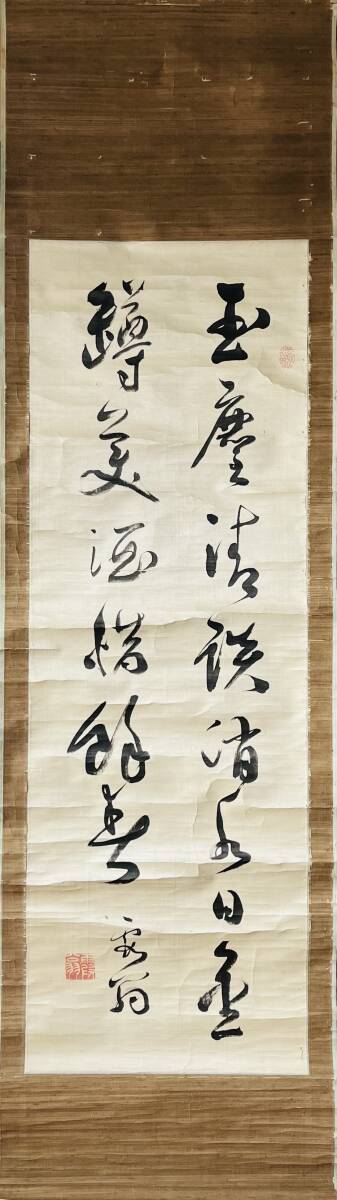 玉麈清談消永日金
罇美酒惜餘春
霞翁